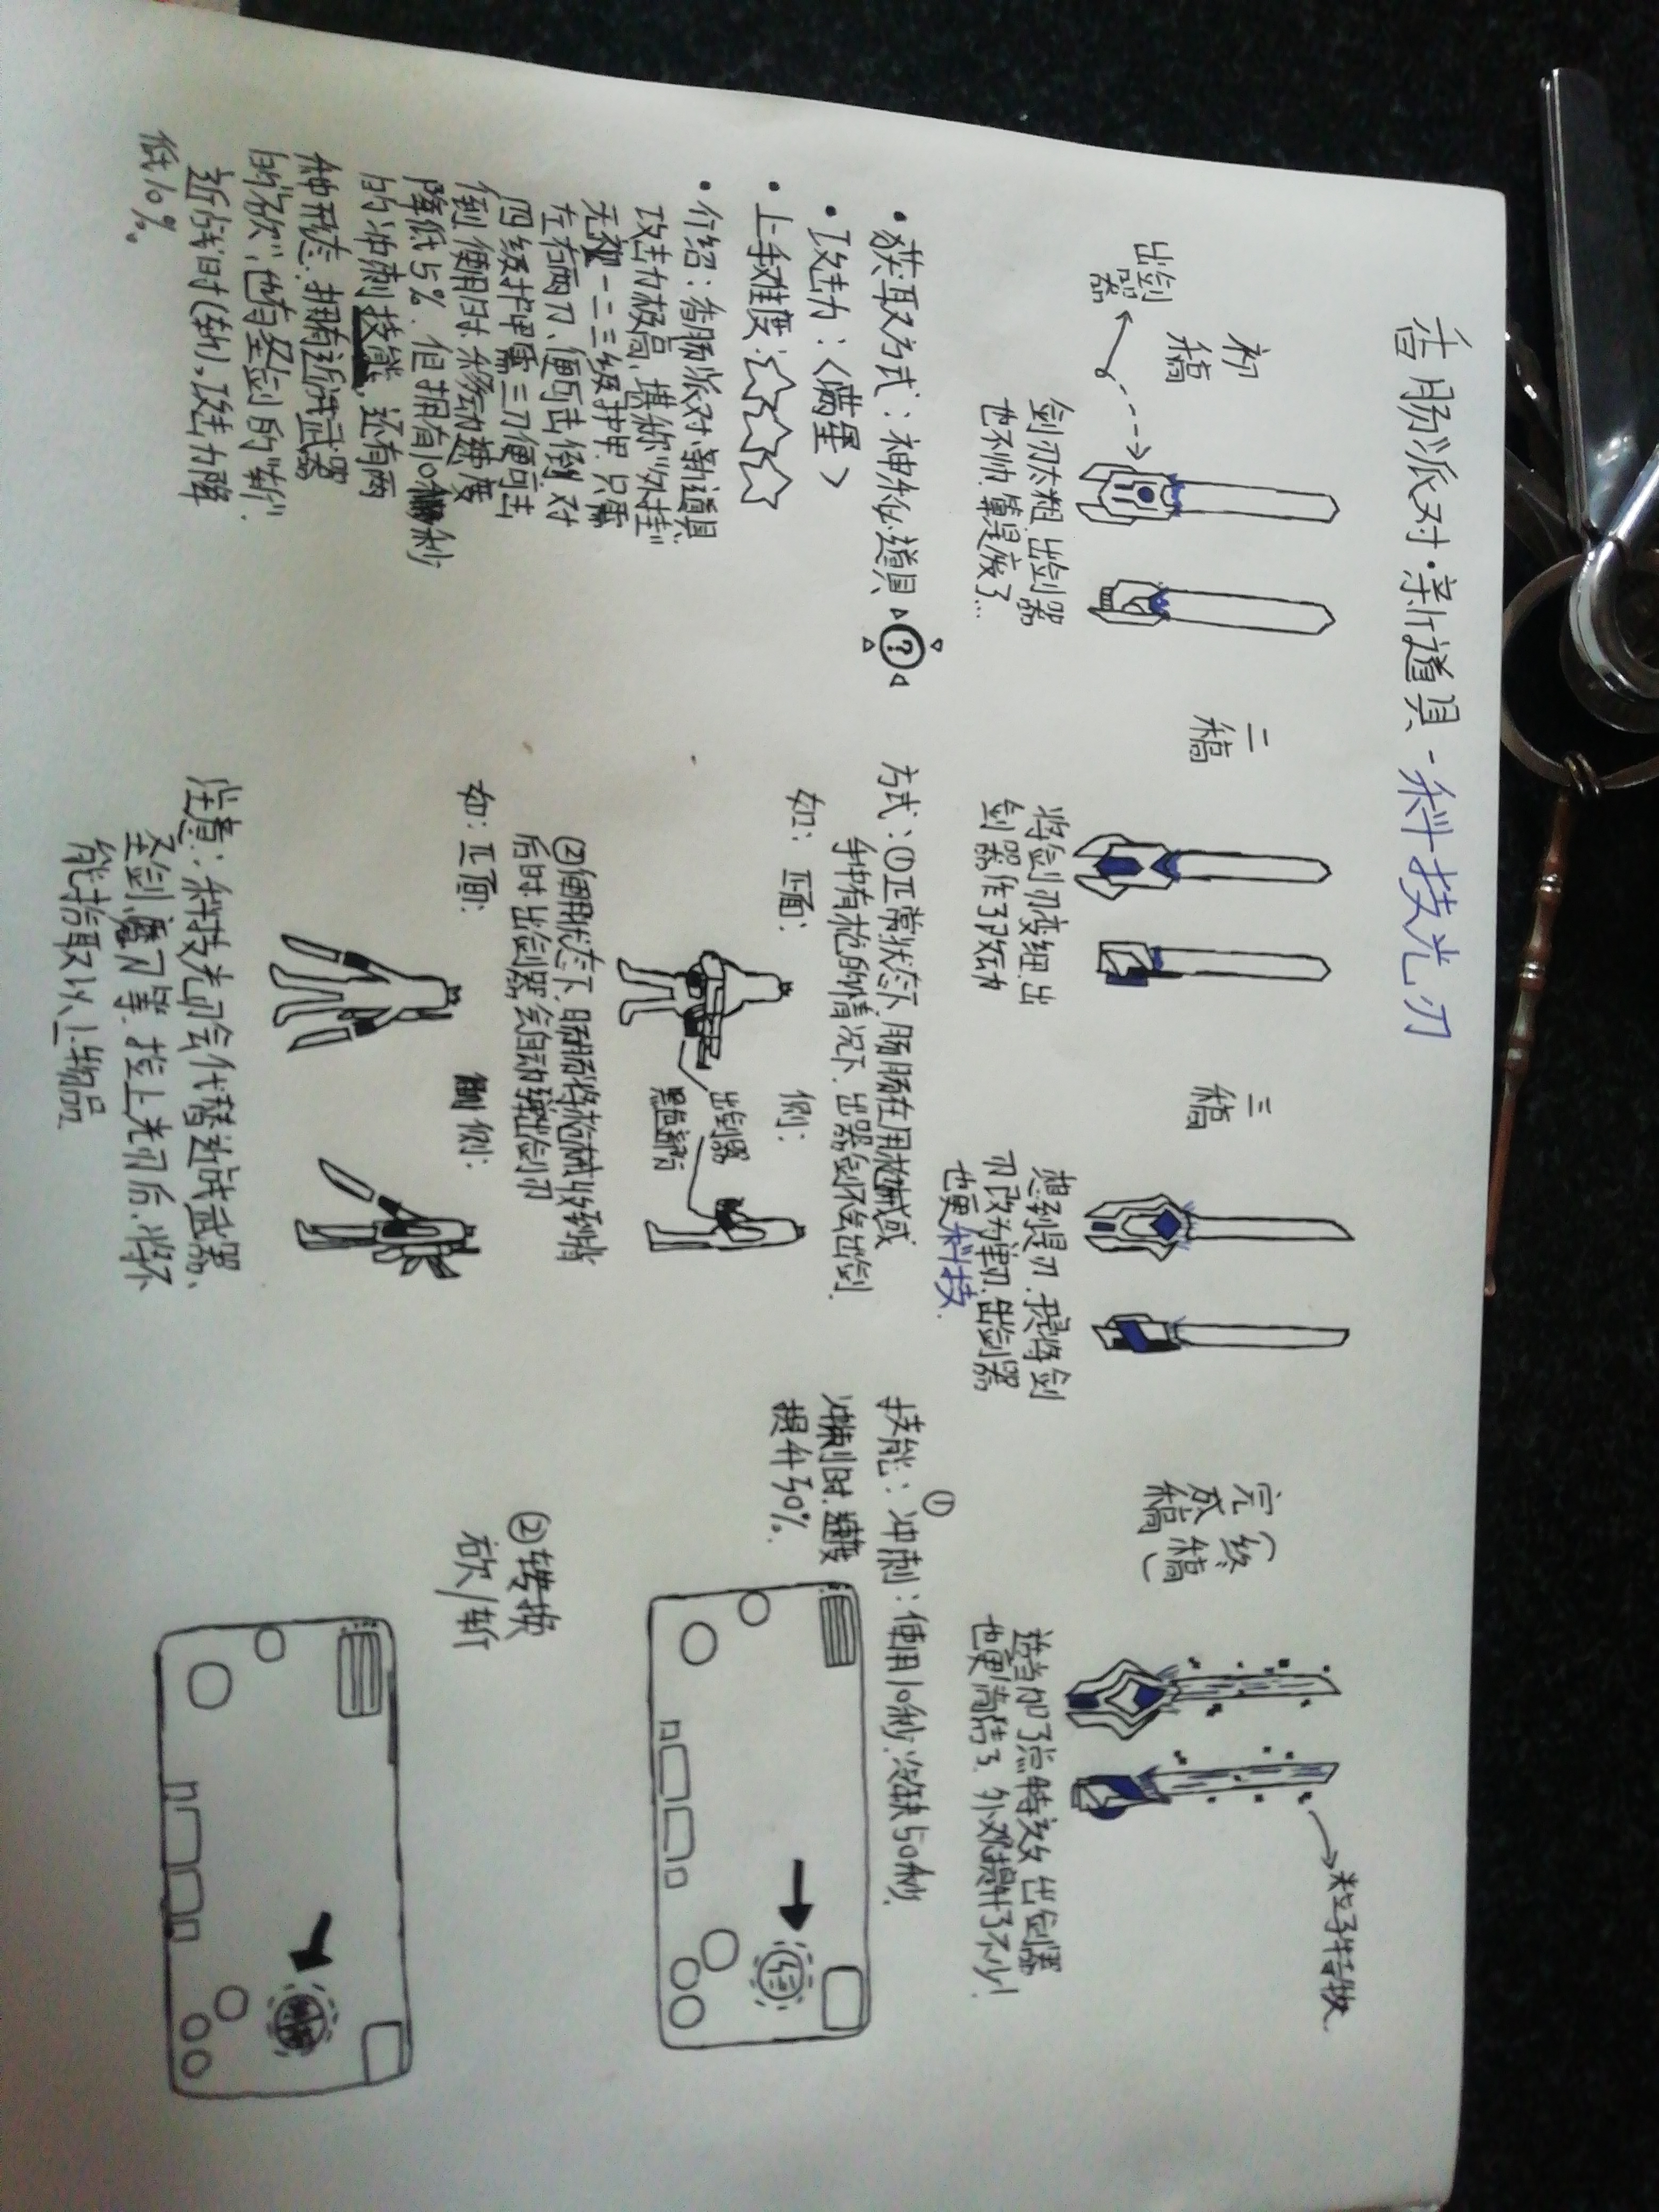 香肠派对·新道具-科技光刃
初稿
出剑器
剑刃太粗.出剑器
也不帅.算是废了...
二稿
将剑刃变细.出
剑器作了改动
三稿
想到是刃.我将剑
刃改为单刃.出剑器
也更科技.
完成稿
(终稿)
粒子特效
这者加了点特效.出剑器
也更简洁了.外观提升了不少!
•获取方式:神秘道具 ?
•攻击力:<满星>
•上手难度:☆☆☆
•介绍:香肠派对新道具.
攻击力极高.堪称“外挂”
无视一二三级护甲.只需
左右两刀、便可击倒.对
四级护甲需三刀便可击
倒.使用时.移动速度
降低5%.但拥有10秒
的冲刺技能,还有两
种形态:拥有近战武器
的“砍”,也有圣剑的“斩”.
近战时(斩),攻击力降
低10%。
方式:①正常状态下.肠肠在用枪械或
手中有枪的情况下.出器剑不会出剑.
如:正面: 侧:
出剑器
黑色部分
②使用状态下.肠肠将枪械收到背
后时.出剑器会自动弹出剑刃
如:正面: 侧:
注意:科技光刃会代替近战武器、
圣剑魔刀等.捡上光刃后.将不
能拾取以上物品
技能:①冲刺:使用10秒.冷缺50秒.
冲刺时.速度
提升30%.
②转换
砍/斩